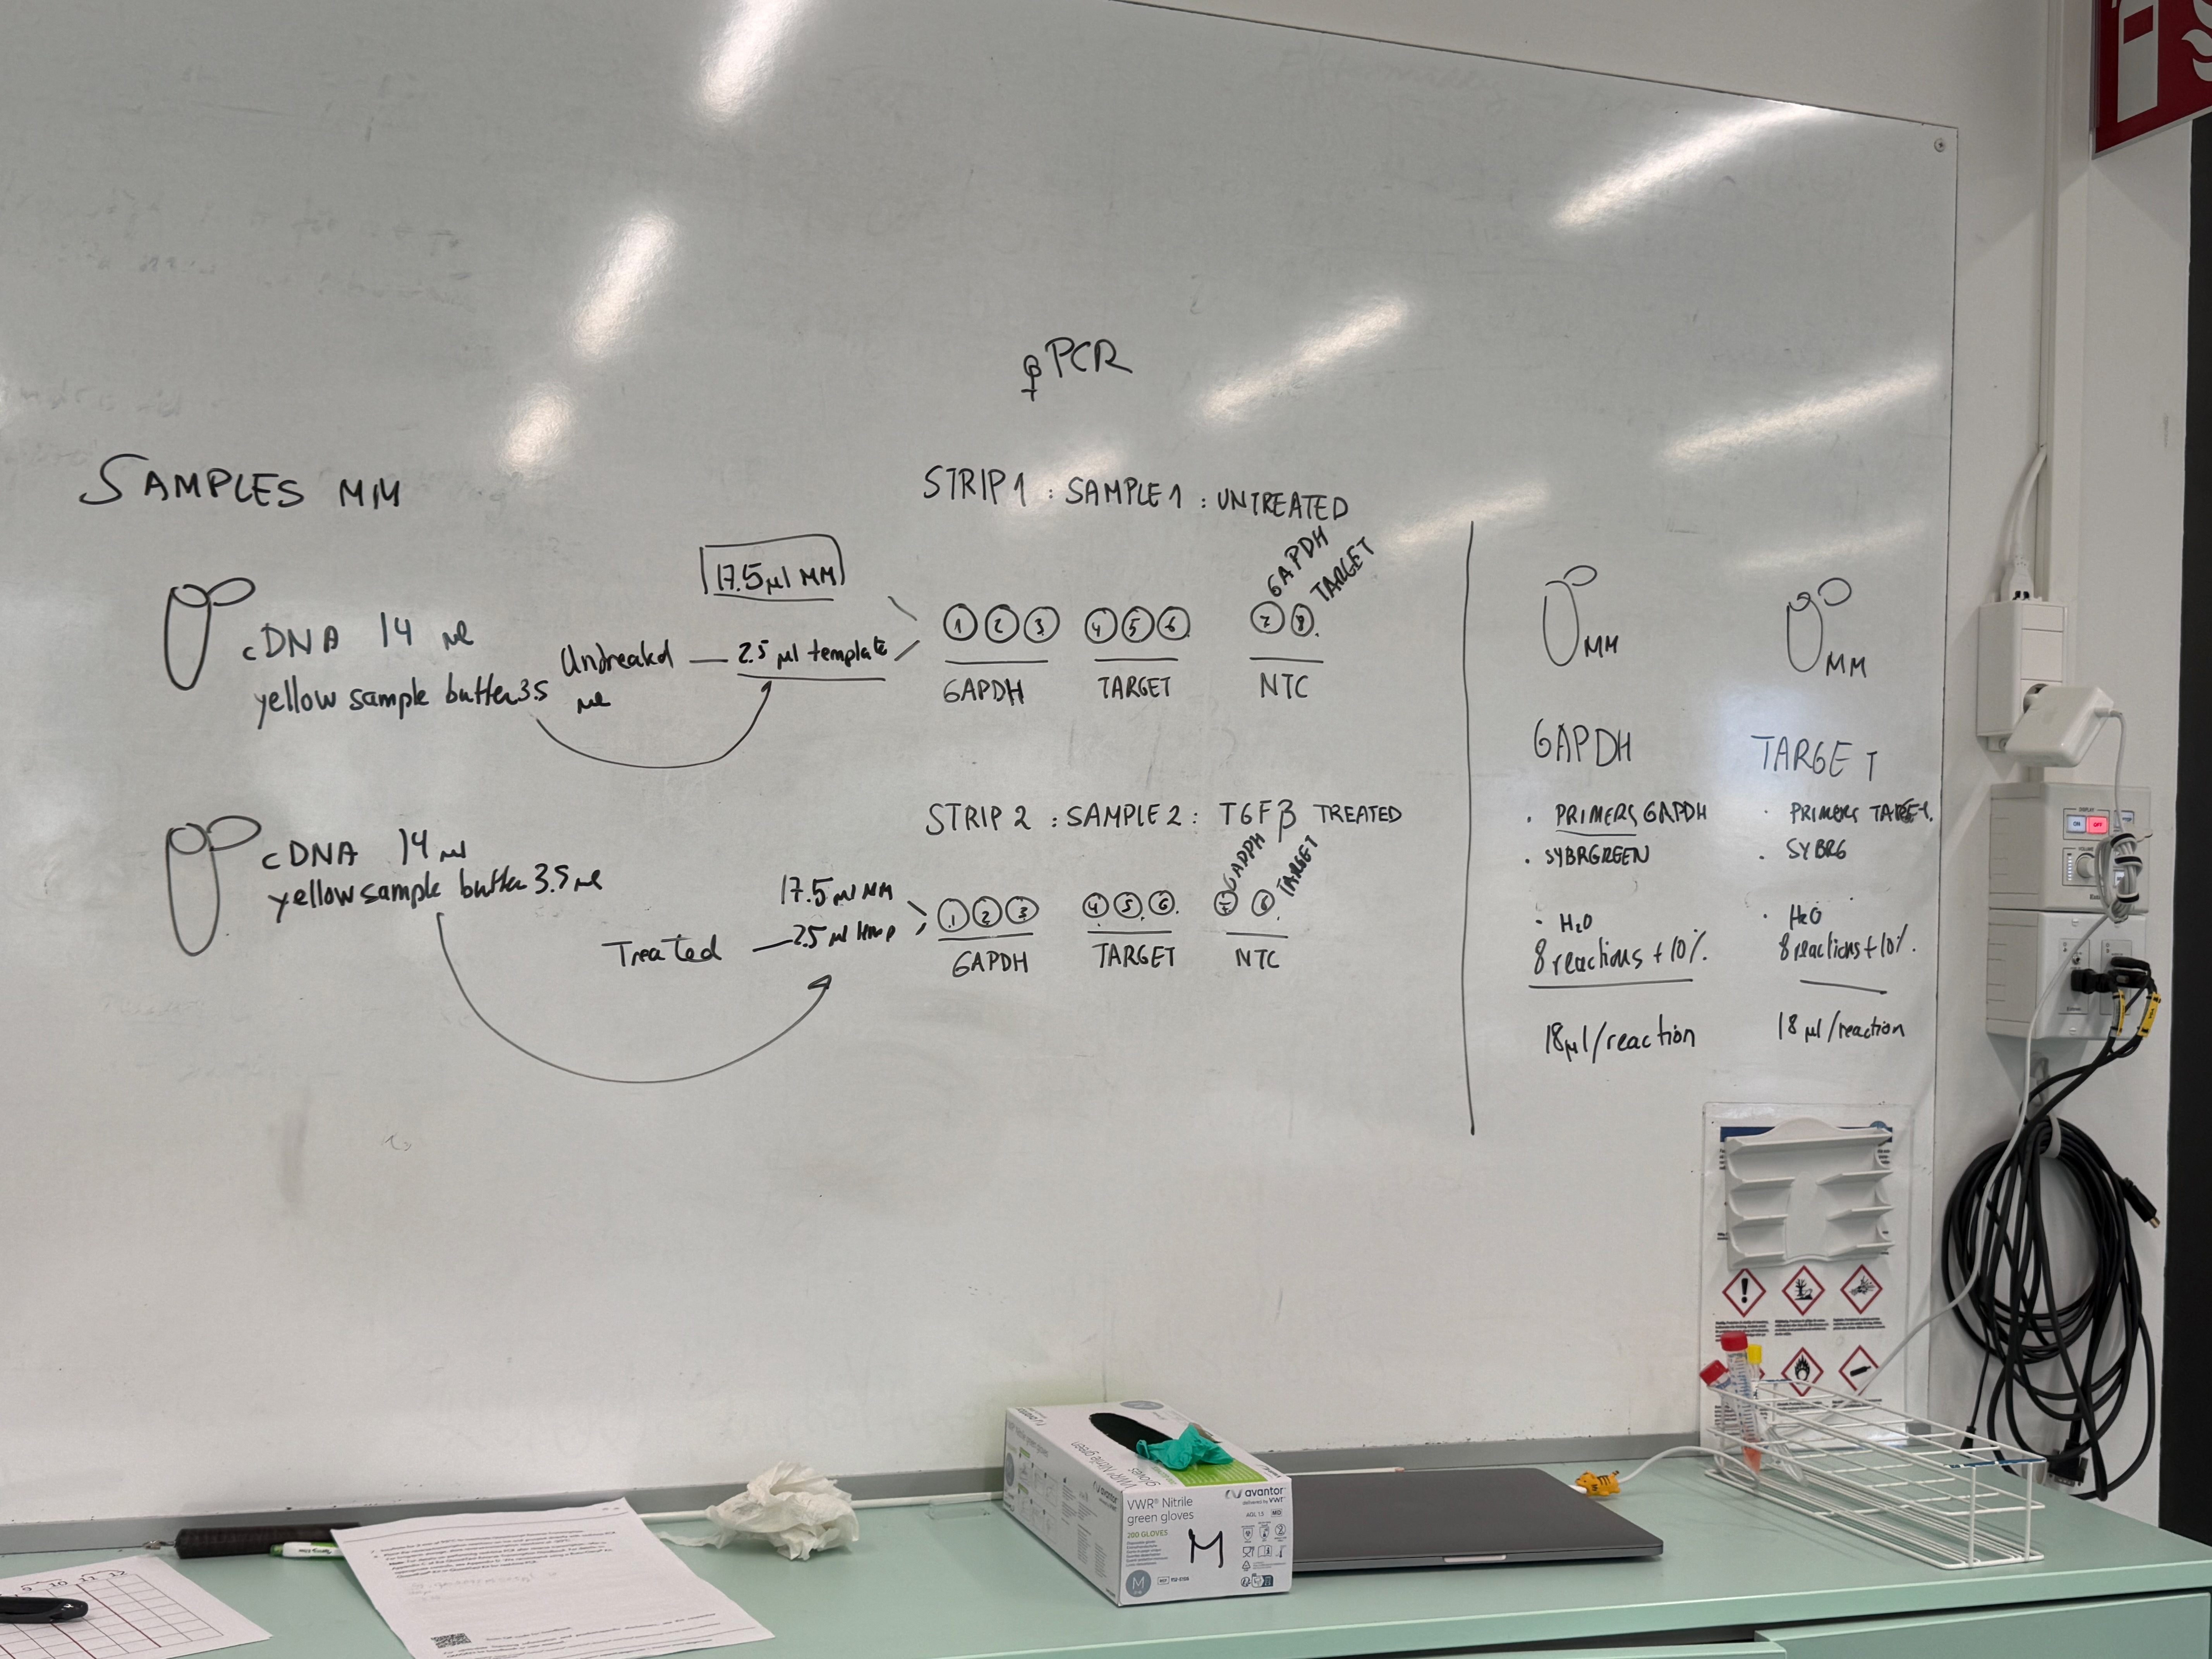 qPCR
SAMPLES MM
cDNA 14 µl
yellow sample buffer 3.5
µl
cDNA 14 µl
yellow sample buffer 3.5 µl
STRIP 1 : SAMPLE 1 : UNTREATED
17.5 µl MM
Untreated — 2.5 µl template
1 2 3 4 5 6 7 8
GAPDH TARGET
GAPDH TARGET NTC
STRIP 2 : SAMPLE 2 : TGFβ TREATED
17.5 µl MM
Treated — 2.5 µl temp
1 2 3 4 5 6 7 8
GAPDH TARGET
GAPDH TARGET NTC
MM
GAPDH
· PRIMERS GAPDH
· SYBRGREEN
· H₂O
8 reactions + 10%
18 µl/reaction
MM
TARGET
· PRIMERS TARGET
· SYBRG
· H₂O
8 reactions + 10%.
18 µl/reaction
DISPLAY
ON OFF
VOLUME
9 10 11 12
VWR® Nitrile
green gloves
200 GLOVES
M
M
avantor
delivered by VWR
AQL 1.5 MD
VWR® Nitrile green gloves